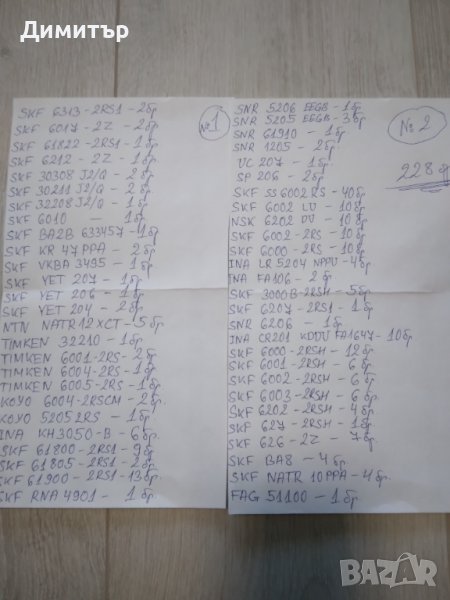 Димитър
SKF 6313-2RS1-2бр
SKF 6017-2Z-2бр
SKF 61822-2RS1-1бр
SKF 6212-2Z-1бр.
SKF 30308 J2/Q-2бр
SKF 30211 J2/Q-2бр
SKF 32208 J2/Q-1бр
SKF 6010 - 1бр.
SKF BA2B 633457-1бр
SKF KR 47 PPA-2бр
SKF VKBA 3495-1бр.
SKF YET 207-1бр
SKF YET 206-1бр
SKF YET 204-2бр
NTN NATR12XCT-5бр
TIMKEN 32210-1бр
TIMKEN 6001-2RS-2бр
TIMKEN 6004-2RS-1бр
TIMKEN 6005-2RS-1бр
KOYO 6004-2RSCM-2бр
KOYO 5205 2RS-1бр
INA KH3050-B-6бр
SKF 61800-2RS1-9бр
SKF 61805-2RS1-2бр
SKF 61900-2RS1-13бр
SKF RNA 4901-1бр
№1
SNR 5206 EEGB-1бр
SNR 5205 EEGB-3бр
SNR 61910-1бр
SNR 1205-2бр
UC 207-1бр
SP 206-2бр
SKF SS6002 RS-40бр
SKF 6002 LU-10бр
NSK 6202 DU-10бр
SKF 6002-2RS-10бр
SKF 6000-2RS-10бр
INA LR 5204 NPPU-4бр
INA FA106-2бр
SKF 3000B-2RSH-5бр
SKF 6207-2RS1-1бр
SNR 6206-1бр
INA CR201 KDDU FA1647-10бр
SKF 6000-2RSH-12бр
SKF 6001-2RSH-6бр
SKF 6002-2RSH-6бр
SKF 6003-2RSH-6бр
SKF 6202-2RSH-4бр
SKF 627-2RSH-1бр
SKF 626-2Z-7бр
SKF BA8-4бр
SKF NATR 10 PPA-4бр
FAG 51100-1бр
№2
228 бр
BAZAR